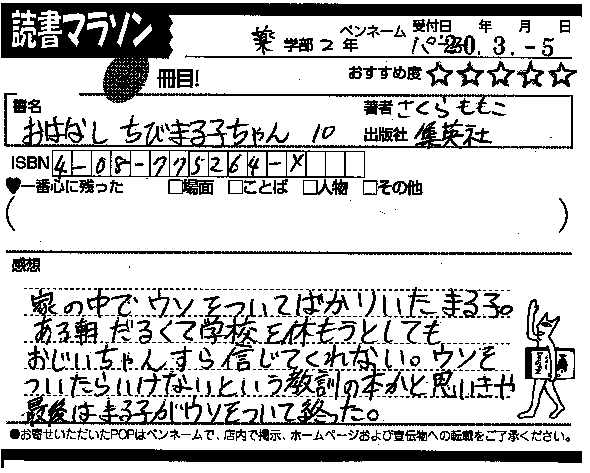 読書マラソン
冊目!
薬 学部 2 年
ペンネーム
受付日 年 月 日
0. 3. -5
おすすめ度 ☆☆☆☆☆
書名
おはなし ちびまる子ちゃん 10
著者 さくらももこ
出版社 集英社
ISBN 4-08-775264-X
♥一番心に残った □場面 □ことば □人物 □その他
( )
感想
家の中でウソをついてばかりいたまる子。
ある朝 だるくて学校を休もうとしても
おじいちゃんすら信じてくれない。ウソを
ついたらいけないという教訓の本かと思いきや
最後はまる子がウソをついて終った。
●お寄せいただいたPOPはペンネームで、店内で掲示、ホームページおよび宣伝物への転載をご了承ください。